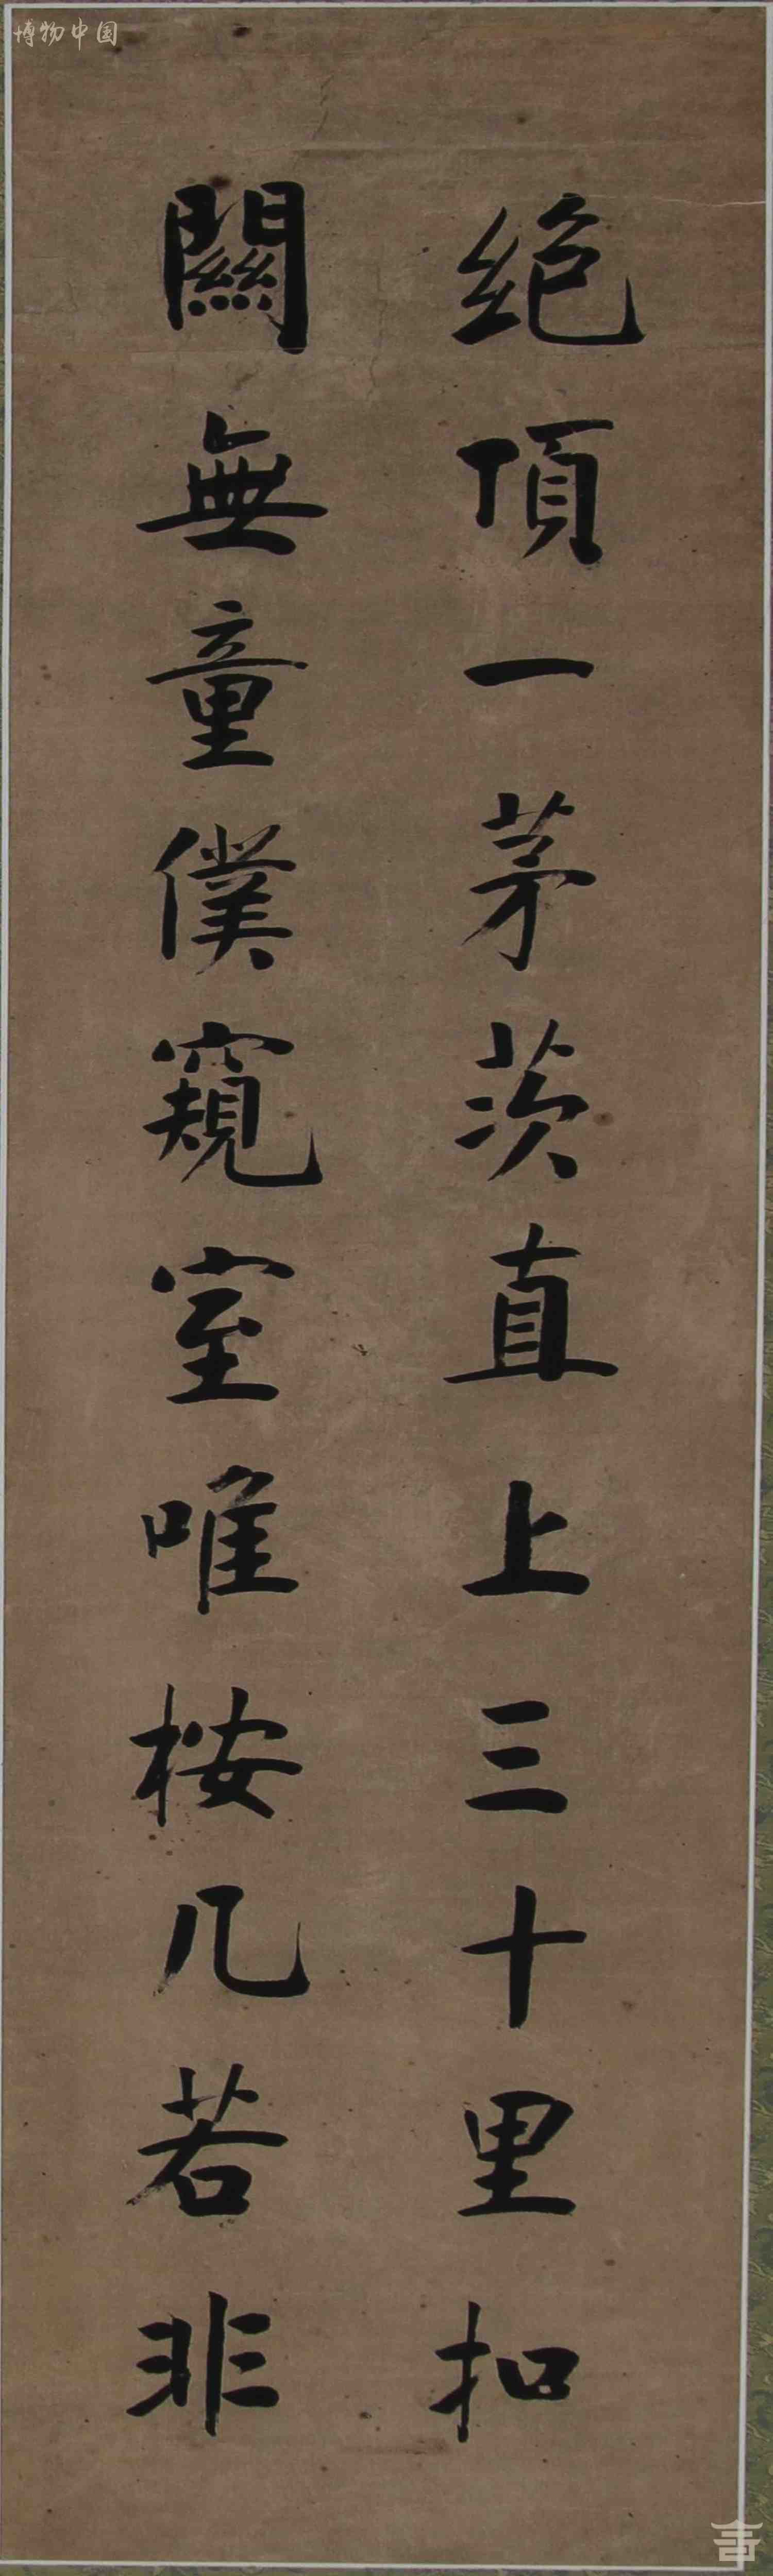 博物中国
绝頂一茅茨直上三十里扣
關無童僕窺室唯桉几若非